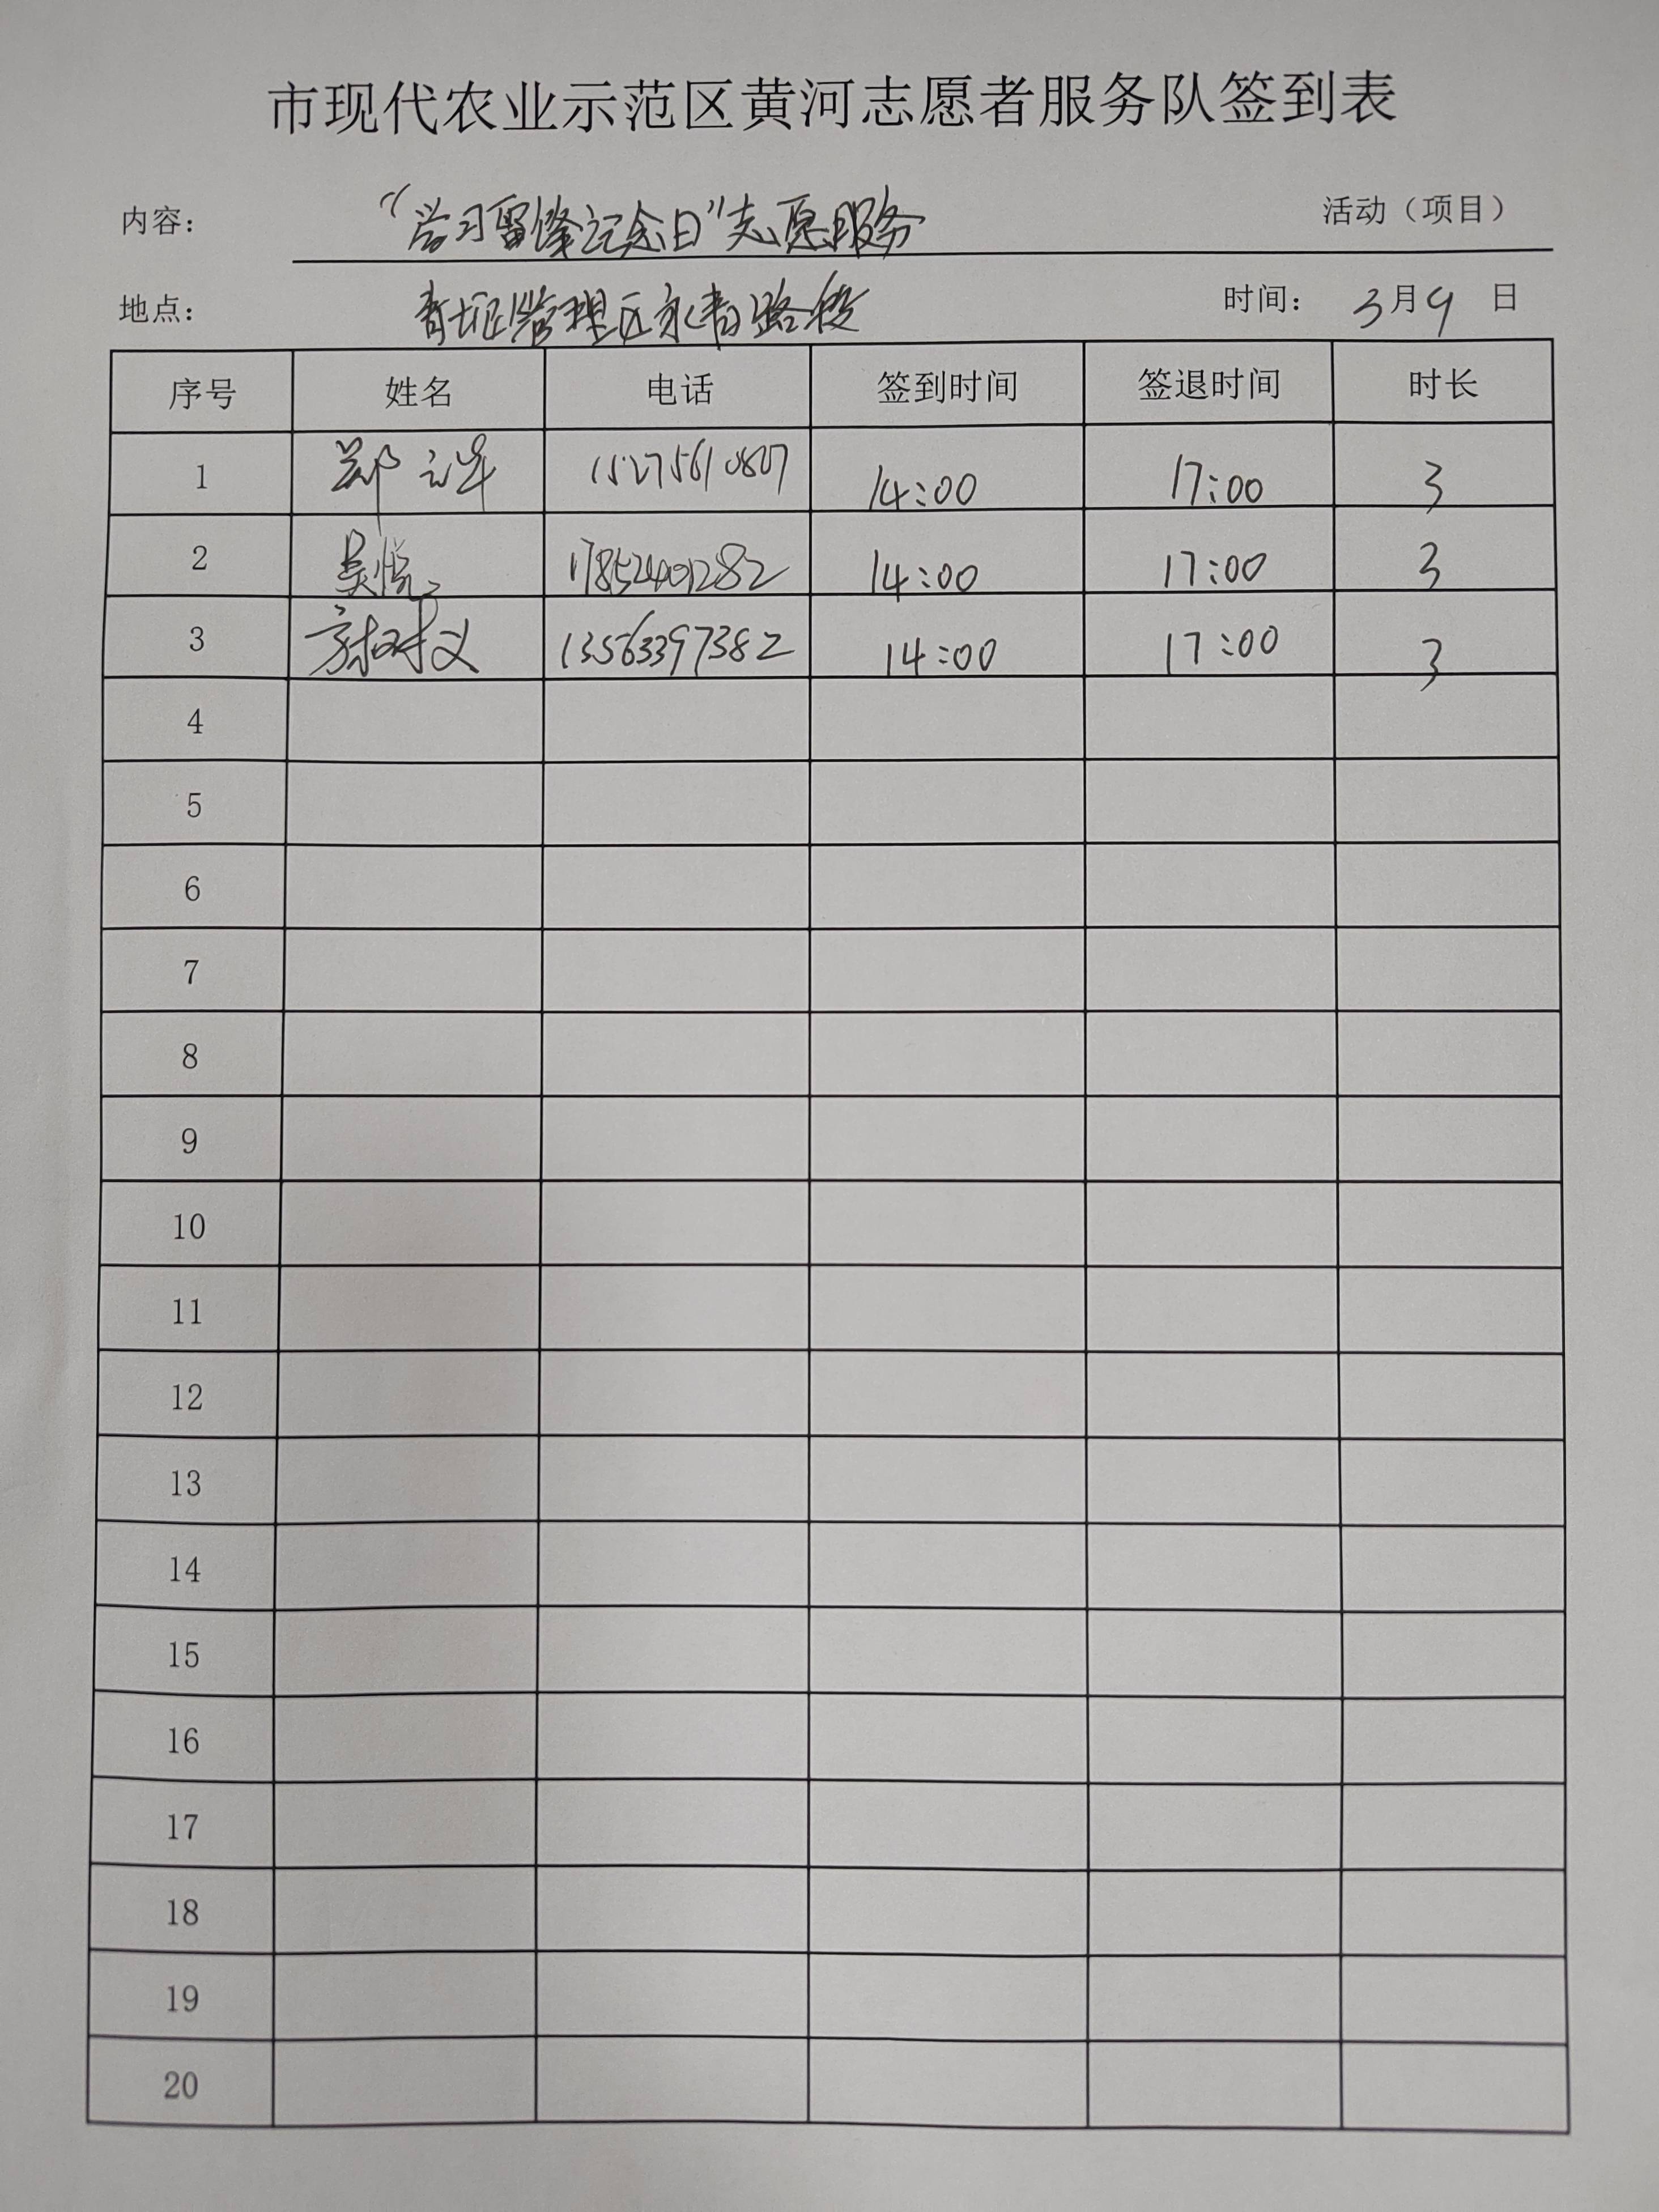 市现代农业示范区黄河志愿者服务队签到表
内容： “学习雷锋纪念日”志愿服务 活动（项目）
地点： 青坨管理区永青路段 时间： 3月9 日
序号 姓名 电话 签到时间 签退时间 时长
1 郑 15275610807 14:00 17:00 3
2 吴悦 17852401282 14:00 17:00 3
3 13563397382 14:00 17:00 3
4
5
6
7
8
9
10
11
12
13
14
15
16
17
18
19
20